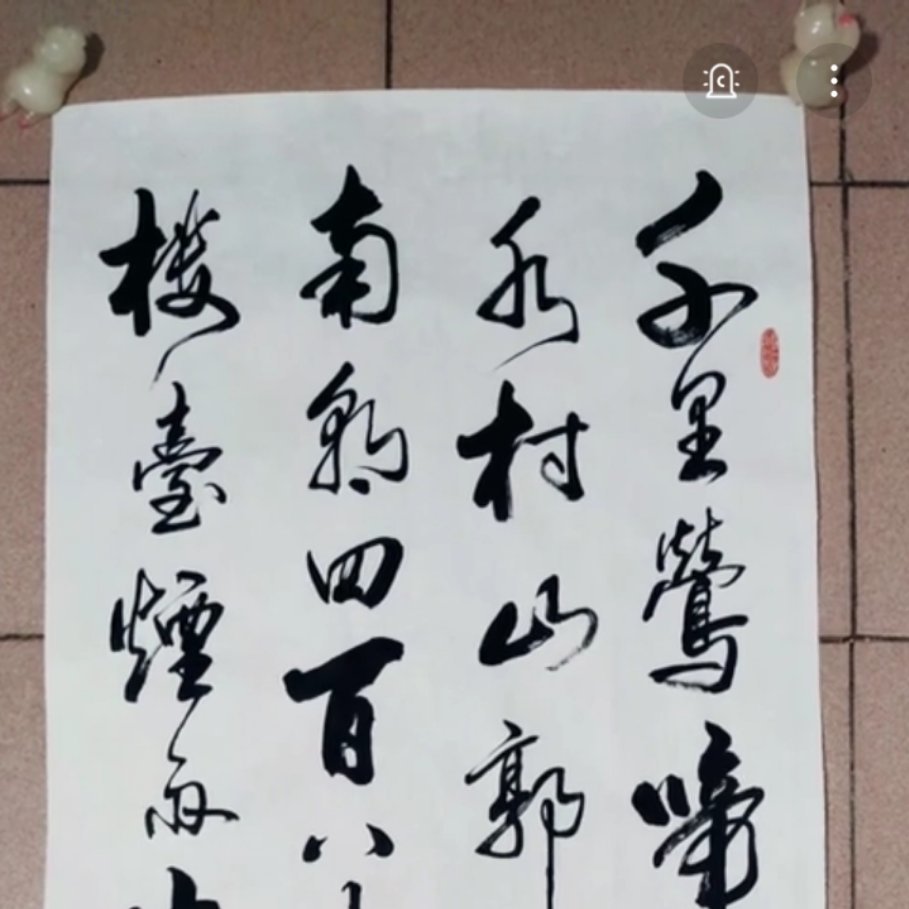 千里鶯啼
水村山郭
南朝四百八
楼臺煙雨